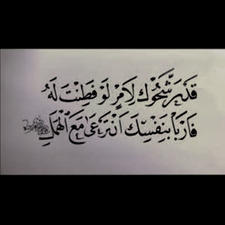 قَدْ رَشَّحُوكَ لِأَمْرٍ لَوْ فَطِنْتَ لَهُ
فَارْبَأْ بِنَفْسِكَ أَنْ تَرْعَى مَعَ الْهَمَلِ